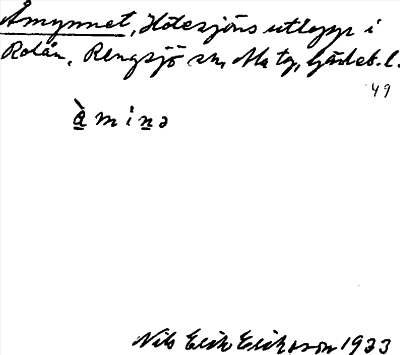 Åmynnet, Hötesjöns utlopp i
Rolån, Rengsjö sn, Ma tg, Gävleb. l.
49
à m i n ə
Nils Erik Eriksson 1933